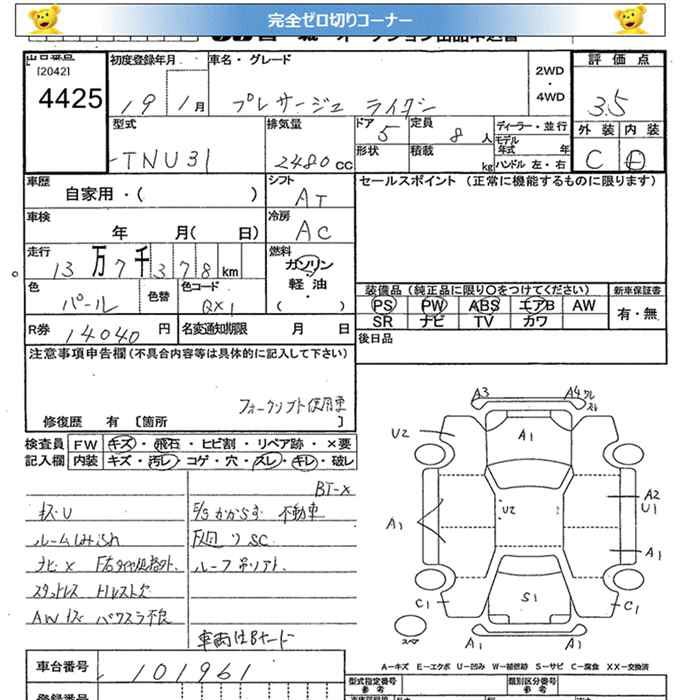 完全ゼロ切りコーナー
出品番号
[2042]
4425
初度登録年月
19 1月
車名・グレード
プレサージュ ライダー
2WD
・
4WD
評価点
3.5
型式
TNU31
排気量
2480cc
ドア
5
定員
8人
形状
積載
kg
ディーラー・並行
モデル年式 年
ハンドル 左・右
外装 内装
C D
車歴
自家用・( )
シフト
AT
セールスポイント (正常に機能するものに限ります)
車検
年 月( 日)
冷房
AC
走行
13万7千378km
燃料
ガソリン
軽油
( )
色
パール
色替
色コード
QX1
装備品 (純正品に限り○をつけてください)
PS PW ABS エアB AW
SR ナビ TV カワ
新車保証書
有・無
R券
14040円
名変通知期限 月 日
後日品
注意事項申告欄(不具合内容等は具体的に記入して下さい)
フォークリフト使用車
修復歴 有 [箇所 ]
検査員 FW キズ・飛石・ヒビ割・リペア跡・×要
記入欄 内装 キズ・汚レ・コゲ・穴・スレ・キレ・破レ
BT-X
キズU
E/Gかからず 不動車
ルームしみ汚れ
F廻りSC
ナビ×
ルーフ
スタットレス
AWキズ パワスラ不良
車両はBヤード
A3
A4
U2
A1
U2
A2
U1
A1
A1
S1
C1
C1
A1
スペア
A-キズ E-エクボ U-凹み W-補修跡 S-サビ C-腐食 XX-交換済
車台番号
101961
型式指定番号
参考
類別区分番号
参考
登録番号